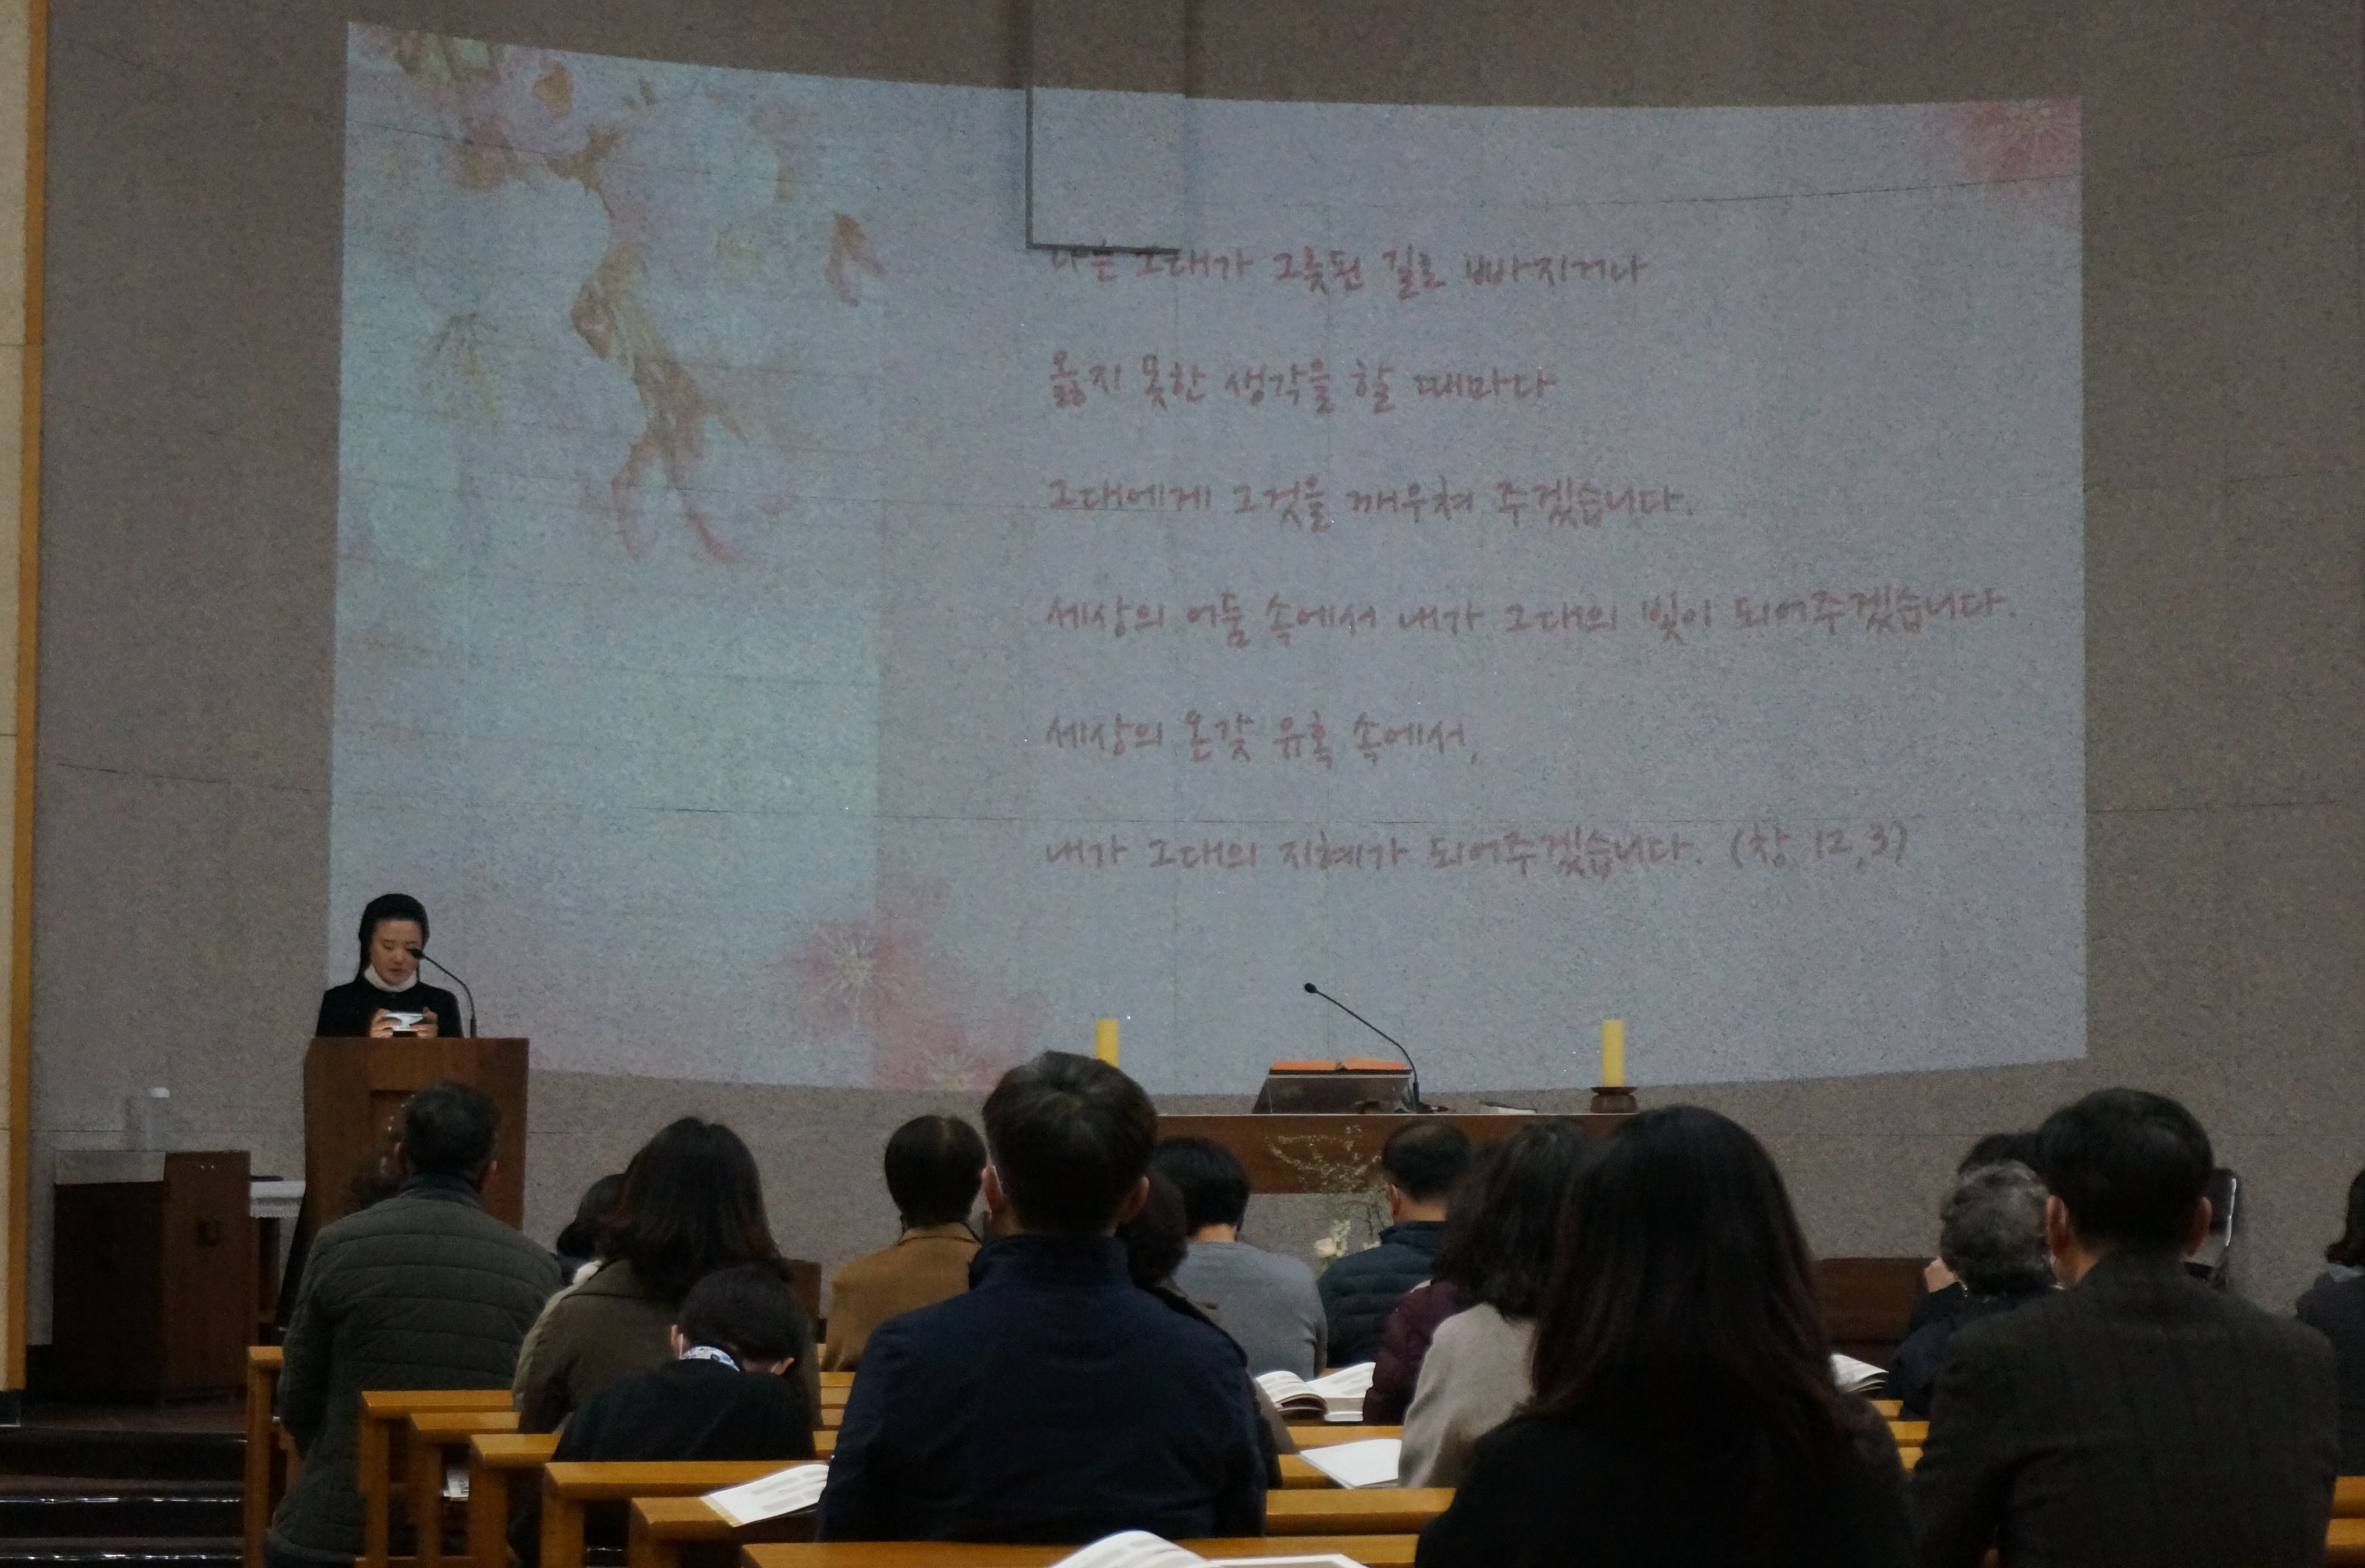 나는 그대가 그릇된 길로 빠지거나
옳지 못한 생각을 할 때마다
그대에게 그것을 깨우쳐 주겠습니다.
세상의 어둠 속에서 내가 그대의 빛이 되어주겠습니다.
세상의 온갖 유혹 속에서,
내가 그대의 지혜가 되어주겠습니다. (창 12,3)